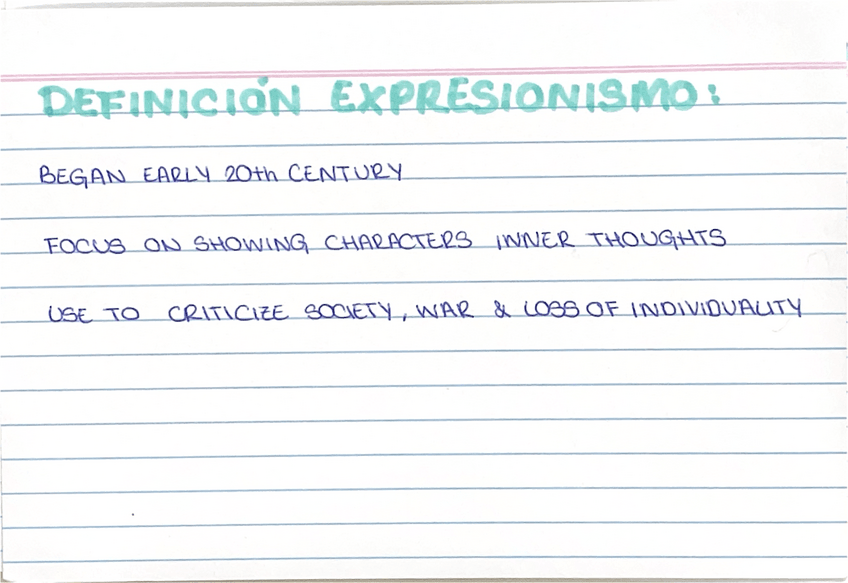 DEFINICIÓN EXPRESIONISMO:
BEGAN EARLY 20th CENTURY
FOCUS ON SHOWING CHARACTERS INNER THOUGHTS
USE TO CRITICIZE SOCIETY, WAR & LOSS OF INDIVIDUALITY